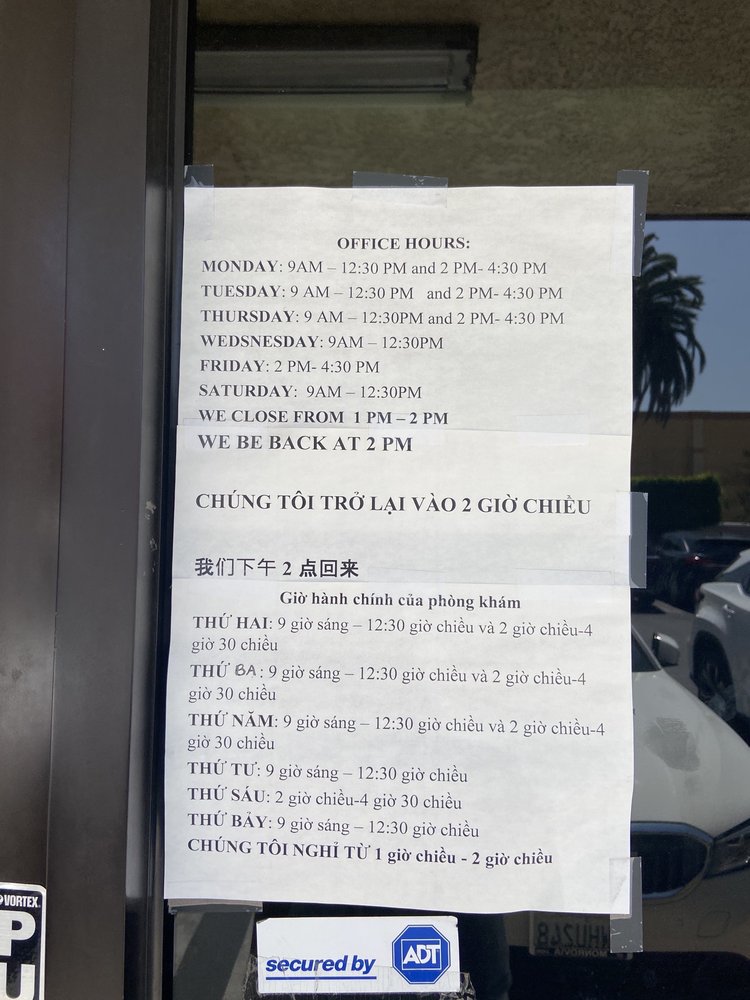 OFFICE HOURS:
MONDAY: 9AM – 12:30 PM and 2 PM- 4:30 PM
TUESDAY: 9 AM – 12:30 PM and 2 PM- 4:30 PM
THURSDAY: 9 AM – 12:30PM and 2 PM- 4:30 PM
WEDSNESDAY: 9AM – 12:30PM
FRIDAY: 2 PM- 4:30 PM
SATURDAY: 9AM – 12:30PM
WE CLOSE FROM 1 PM – 2 PM
WE BE BACK AT 2 PM
CHÚNG TÔI TRỞ LẠI VÀO 2 GIỜ CHIỀU
我们下午 2 点回来
Giờ hành chính của phòng khám
THỨ HAI: 9 giờ sáng – 12:30 giờ chiều và 2 giờ chiều-4
giờ 30 chiều
THỨ BA: 9 giờ sáng – 12:30 giờ chiều và 2 giờ chiều-4
giờ 30 chiều
THỨ NĂM: 9 giờ sáng – 12:30 giờ chiều và 2 giờ chiều-4
giờ 30 chiều
THỨ TƯ: 9 giờ sáng – 12:30 giờ chiều
THỨ SÁU: 2 giờ chiều-4 giờ 30 chiều
THỨ BẢY: 9 giờ sáng – 12:30 giờ chiều
CHÚNG TÔI NGHỈ TỪ 1 giờ chiều - 2 giờ chiều
VORTEX
P
U
secured by ADT